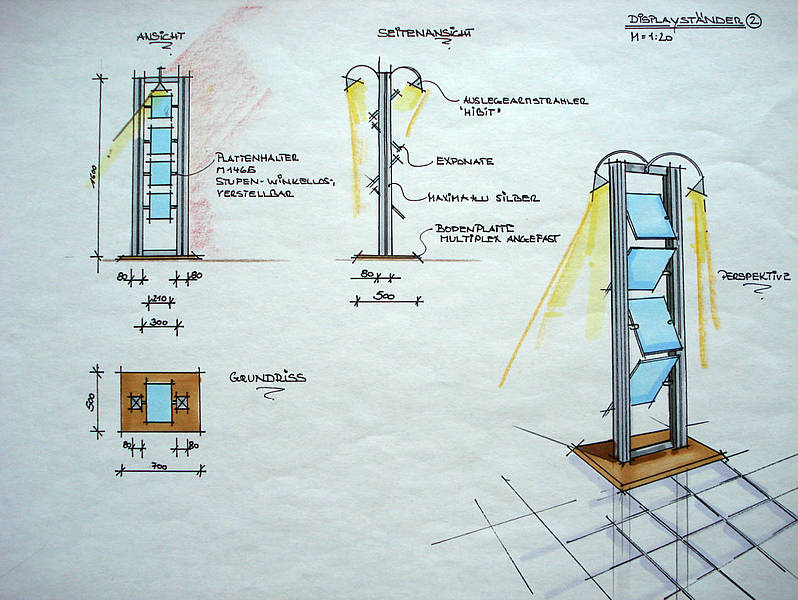 ANSICHT
SEITENANSICHT
DISPLAYSTÄNDER 2
M=1:20
AUSLEGEARMSTRAHLER
"HIBIT"
PLATTENHALTER
STUFEN- WINKELLOS,
VERSTELLBAR
EXPONATE
MAXIMA SILBER
BODENPLATTE
MULTIPLEX ANGEFAST
1600
80 80
210
300
80
500
PERSPEKTIVE
GRUNDRISS
500
80 80
700